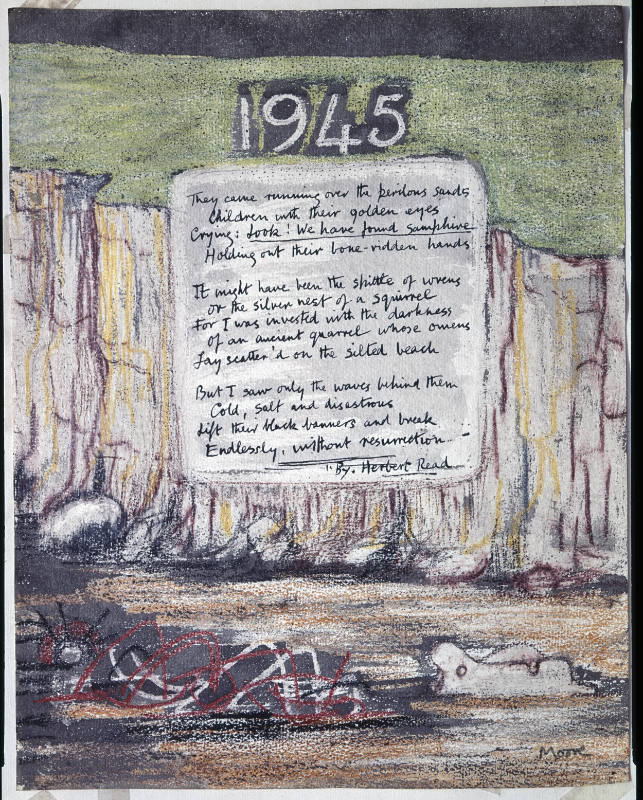 1945
They came running over the perilous sands
Children with their golden eyes
Crying: Look! We have found samphire
Holding out their bone-ridden hands
It might have been the spittle of wrens
or the silver nest of a squirrel
For I was invested with the darkness
of an ancient quarrel whose omens
Lay scatter'd on the silted beach
But I saw only the waves behind them
Cold, salt and disastrous
Lift their black banners and break
Endlessly, without resurrection
By. Herbert Read
Moore